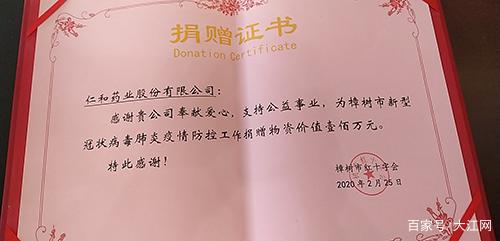 捐赠证书
Donation Certificate
仁和药业股份有限公司：
感谢贵公司奉献爱心，支持公益事业，为樟树市新型
冠状病毒肺炎疫情防控工作捐赠物资价值壹佰万元。
特此感谢！
樟树市红十字会
2020年2月25日
百家号/大江网